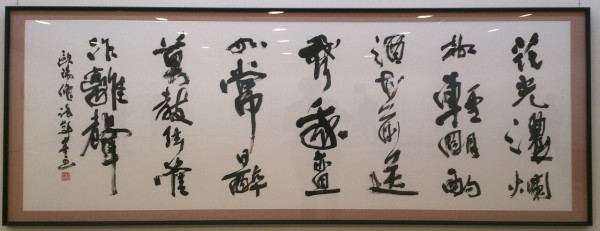 花光濃爛
柳輕明酌
酒花前送
我行我亦且
如常日醉
莫教絃管
作離聲
歐陽修詩